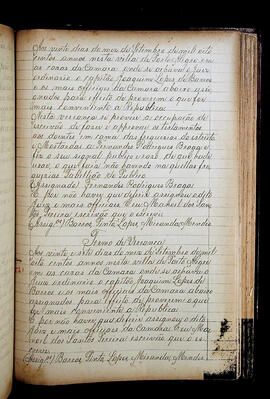 Aos vinte dias do mez de Setembro de mil oito
centos annos nesta villa de Porto Alegre em
as casas da Camara onde se achava o Juiz
ordinario o capitão Joaquim Lopes de Barros
e os mais officiaes da Camara abaixo assi
gnados para effeito de proverem o que for
mais conveniente a Republica
Nesta vereança se proveu a occupação de
escrivão de fazer e approvar os testamentos
aos doentes em
Mostardas a Fernando Rodrigues Braga e
fez o seu signal publico e raso de que pode
usar, o qual fará não havendo naquellas fre
guezias Tabellião do Publico
Assignado) Fernando Rodrigues Braga
E por não haver que deferir assignou o dito
Juiz e mais officiaes. Eu Manoel dos San
tos escrivão que o escrevi
Assigos) Barros, Pinto, Lopes, Miranda, Mendes
Termo de Vereança
Aos vinte e seis dias do mez de Setembro de mil
oito centos annos nesta villa de Porto Alegre
em as casas da Camara onde se achava o
Juiz ordinario o capitão Joaquim Lopes de
Barros e os mais officiaes da Camara abaixo
assignados para effeito de proverem o que
for mais conveniente a Republica
E por não haver que deferir assignou o dito
Juiz e mais officiaes da Camara. Eu Ma
noel dos Santos escrivão que o es
crevi
Assigos) Barros, Pinto, Lopes, Miranda, Mendes